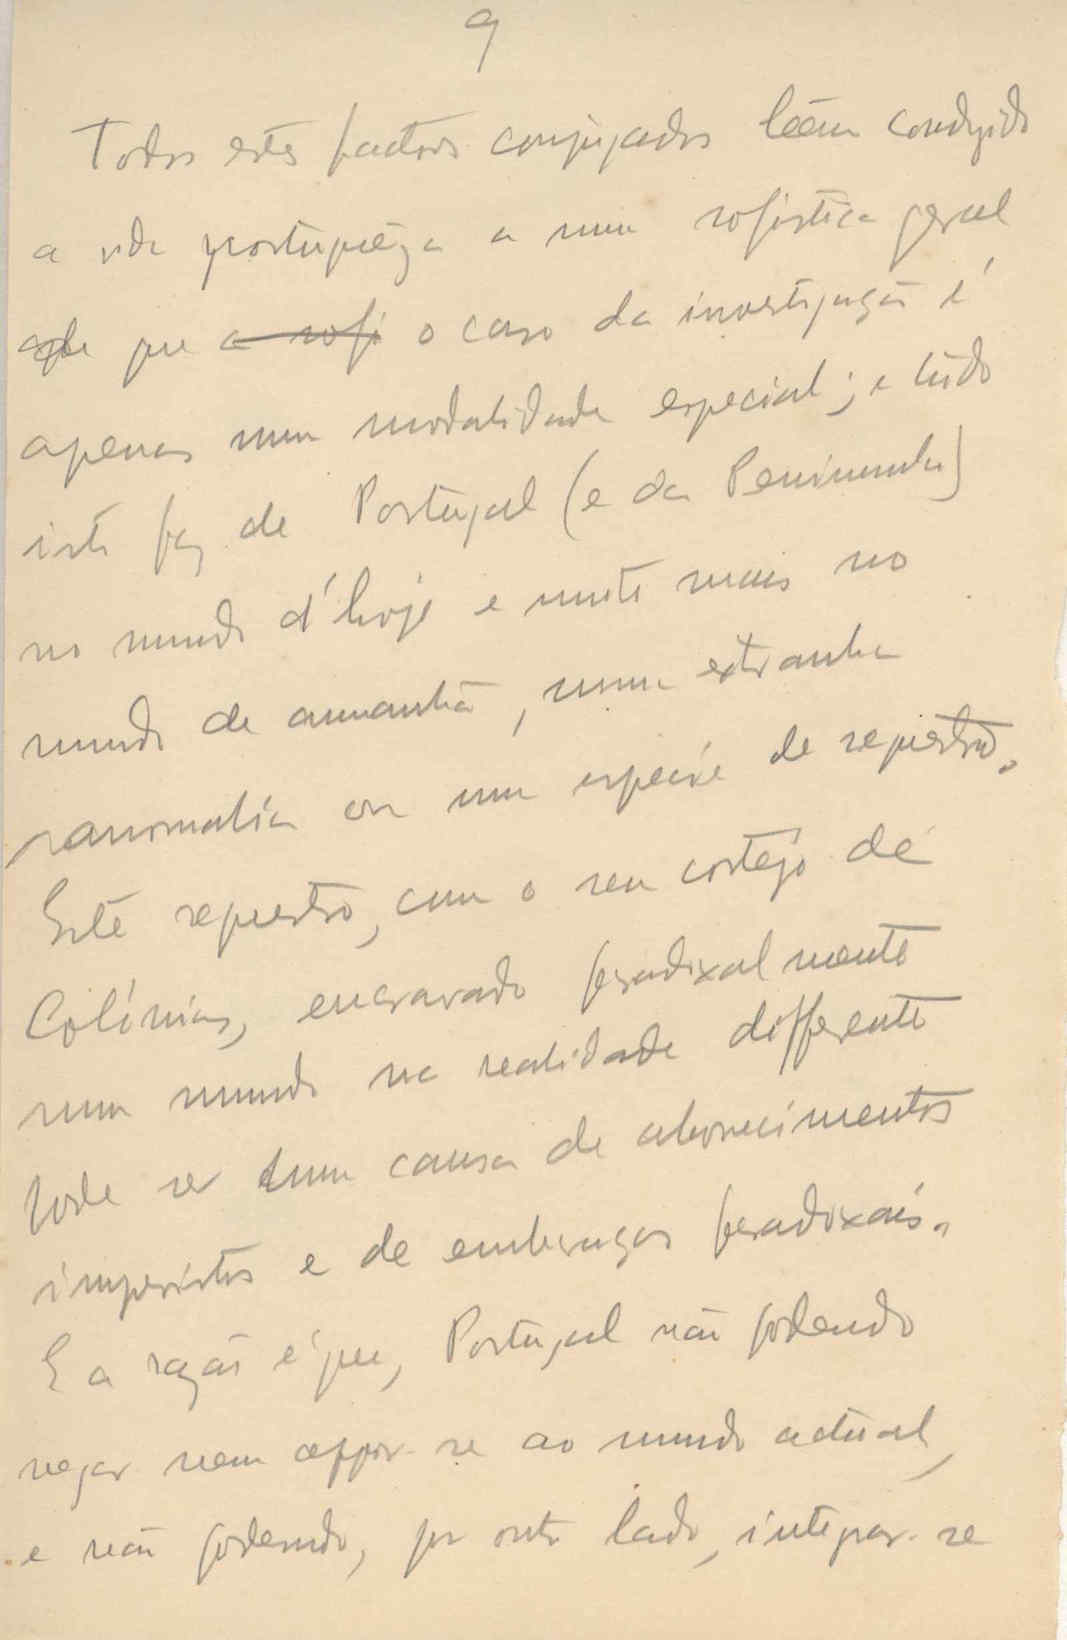 9
Todos estes factores conjugados teem conduzido
a vida portuguêza a uma sofistica geral
de que a sofi o caso da investigação é
apenas uma modalidade especial; e tudo
isto faz de Portugal (e da Peninsula)
no mundo d'hoje e muito mais no
mundo de amanhã, uma extranha
anomalia ou uma especie de sequestro.
Este sequestro, com o seu cortejo de
Colónias, encravado paradoxalmente
num mundo na realidade differente
pode ser uma causa de aborrecimentos
imprevistos e de embaraços paradoxais.
E a razão é que, Portugal não podendo
negar nem oppor-se ao mundo actual,
e não podendo, por outro lado, integrar-se